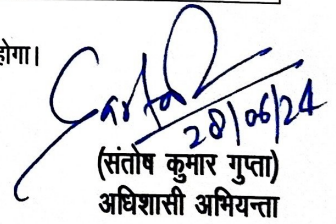 होगा।
28/06/24
(संतोष कुमार गुप्ता)
अधिशासी अभियन्ता